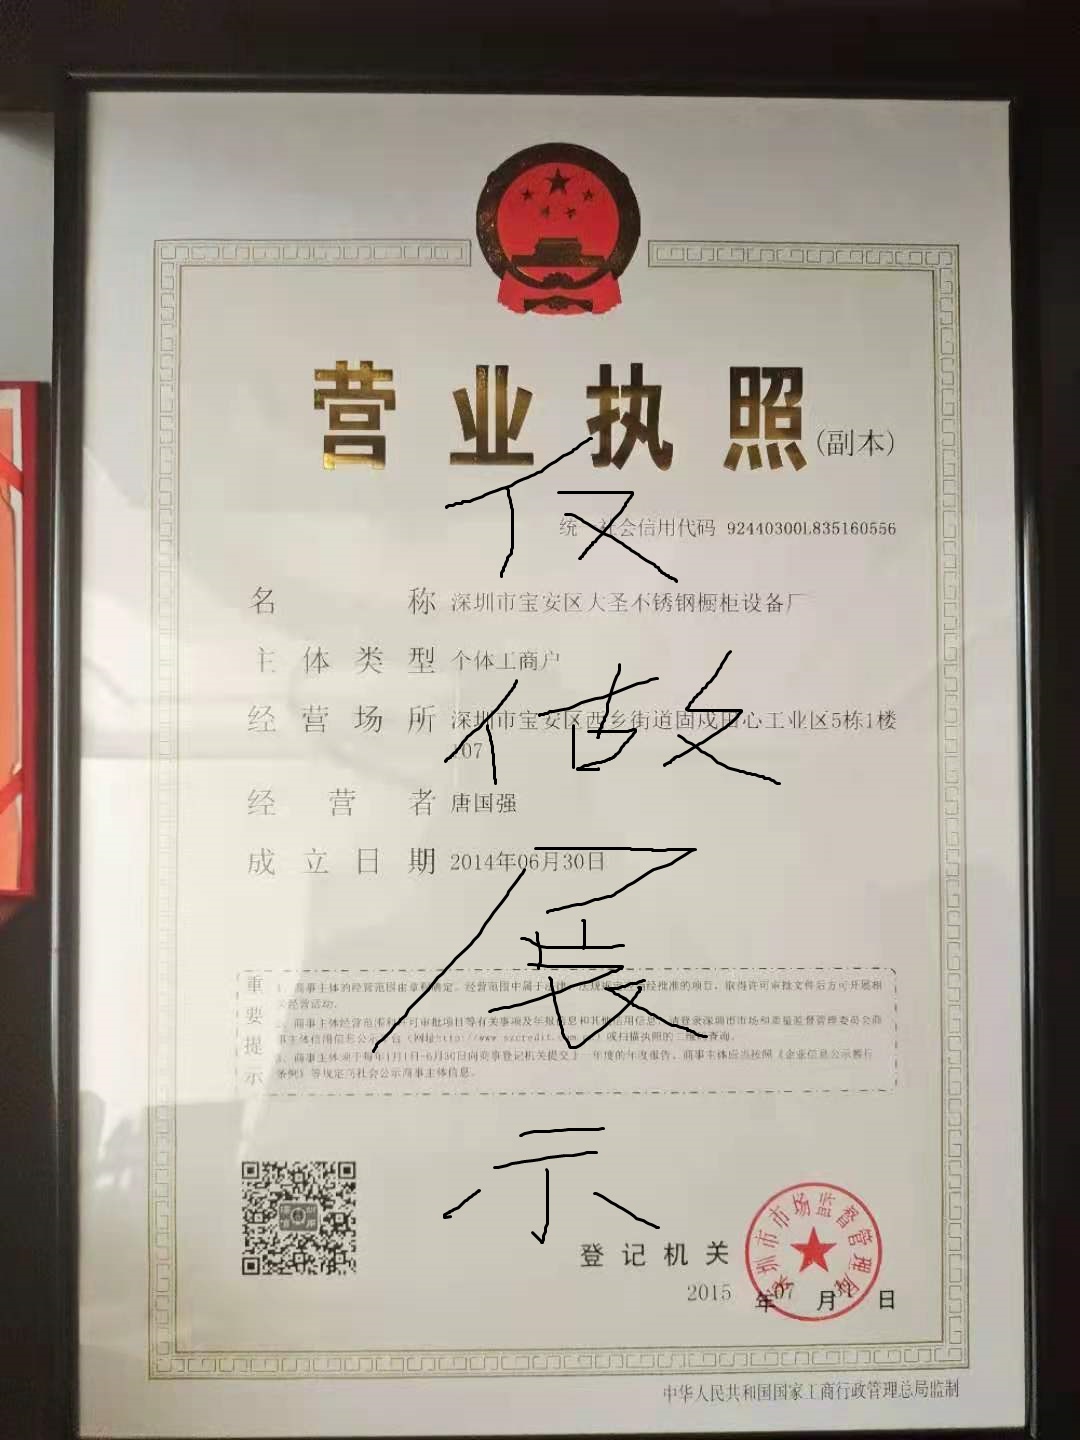 营业执照(副本)
仅
统一社会信用代码 92440300L835160556
名称 深圳市宝安区大圣不锈钢橱柜设备厂
主体类型 个体工商户
经营场所 深圳市宝安区西乡街道固戍田心工业区5栋1楼
107
做
经营者 唐国强
成立日期 2014年06月30日
展
重要提示
1、商事主体的经营范围由章程确定。经营范围中属于法律、法规规定应当经批准的项目，取得许可审批文件后方可开展相
关经营活动。
2、商事主体经营范围和许可审批项目等有关事项及年报信息和其他信用信息，请登录深圳市市场和质量监督管理委员会商
事主体信用信息公示平台（网址http://www.szcredit.com.cn）或扫描执照的二维码查询。
3、商事主体须于每年1月1日-6月30日向商事登记机关提交上一年度的年度报告。商事主体应当按照《企业信息公示暂行
条例》等规定向社会公示商事主体信息。
示
深圳市市场监督管理局
登记机关
2015年07月 日
中华人民共和国国家工商行政管理总局监制